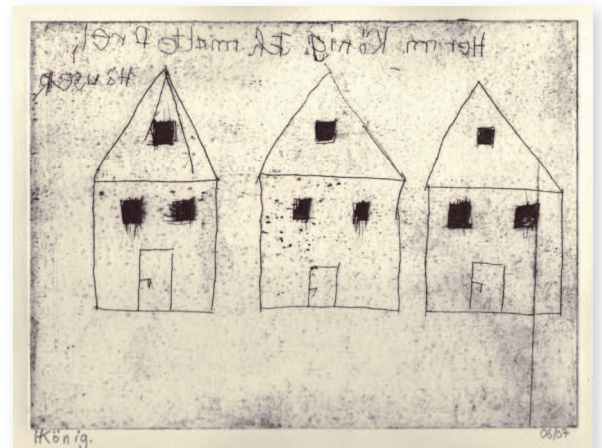 König. Ich malte Drei,
Häuser
HKönig.
06/07